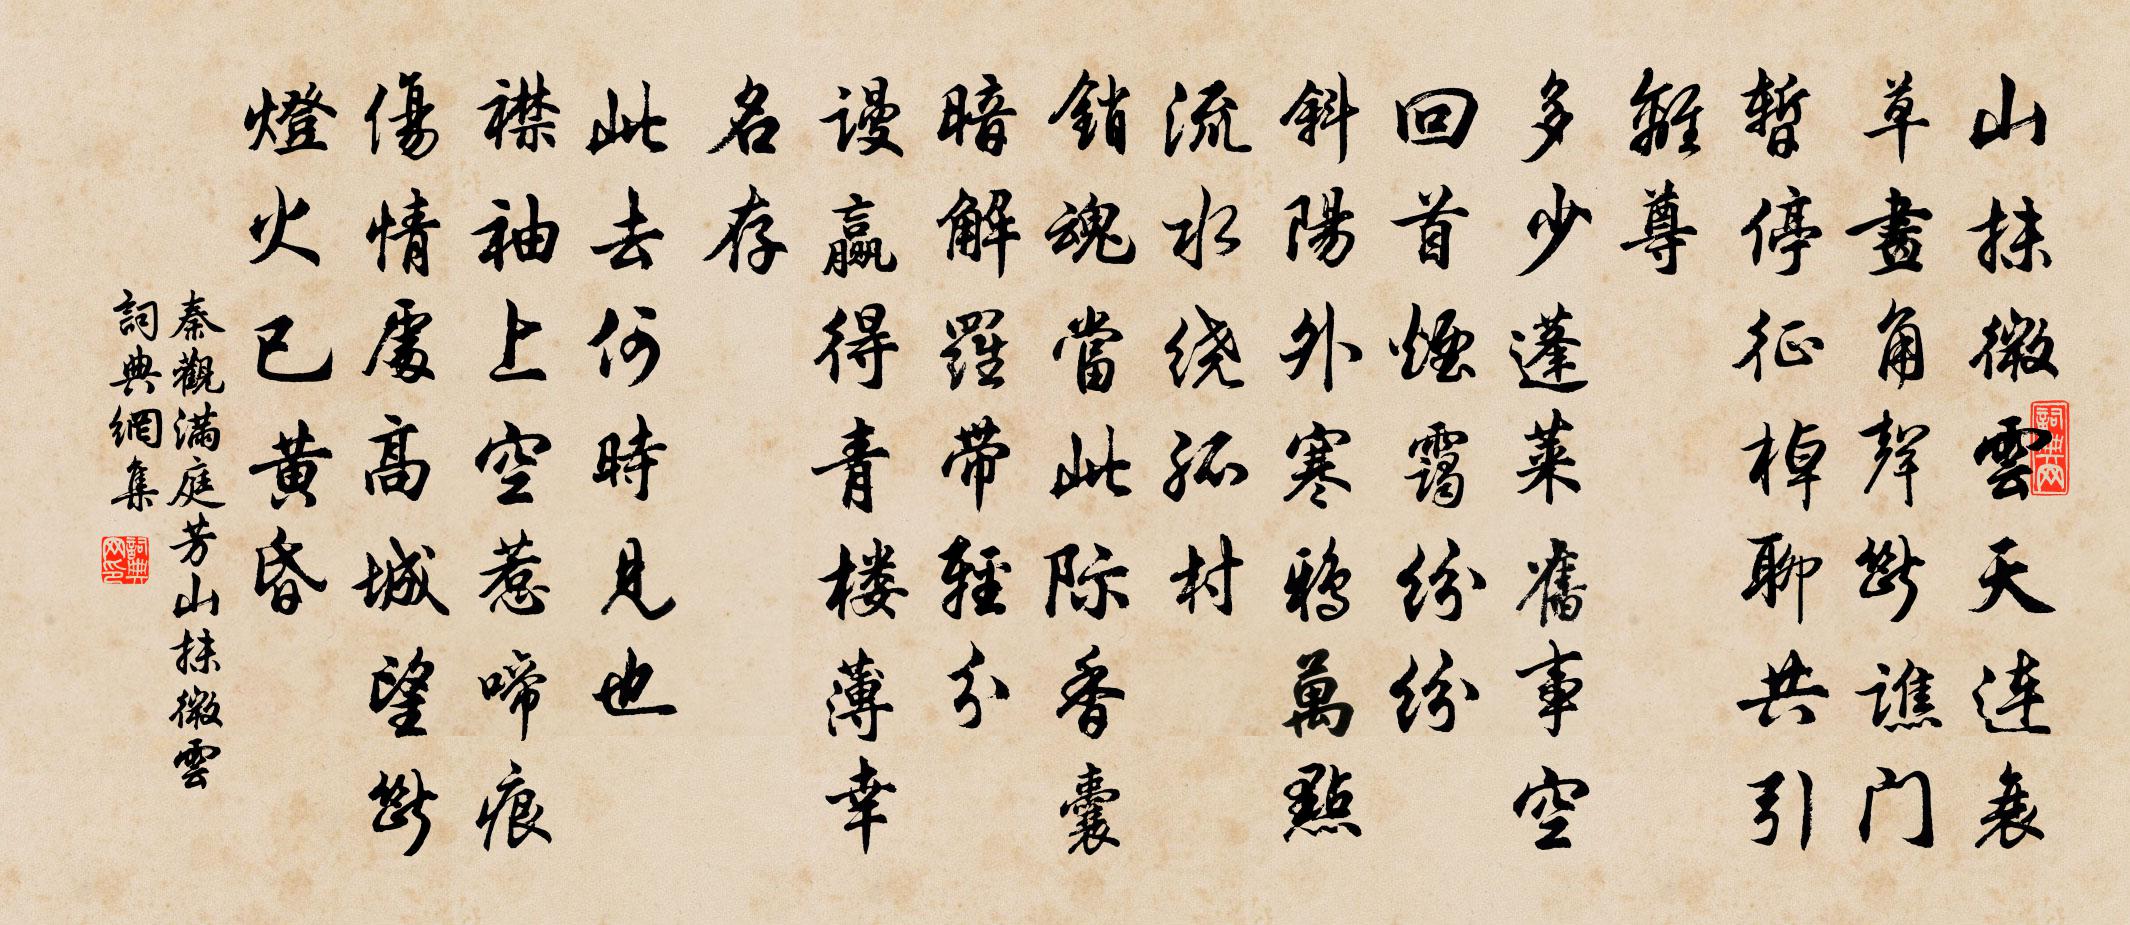 山抹微雲天連衰
草畫角聲斷譙门
暫停征棹聊共引
離尊
多少蓬萊舊事空
回首煙靄纷纷
斜陽外寒鴉萬點
流水绕孤村
銷魂當此际香囊
暗解羅带輕分
謾贏得青楼薄幸
名存
此去何時見也
襟袖上空惹啼痕
傷情處高城望斷
燈火已黄昏
秦觀满庭芳山抹微雲
詞典網集
詞典网
詞典网印